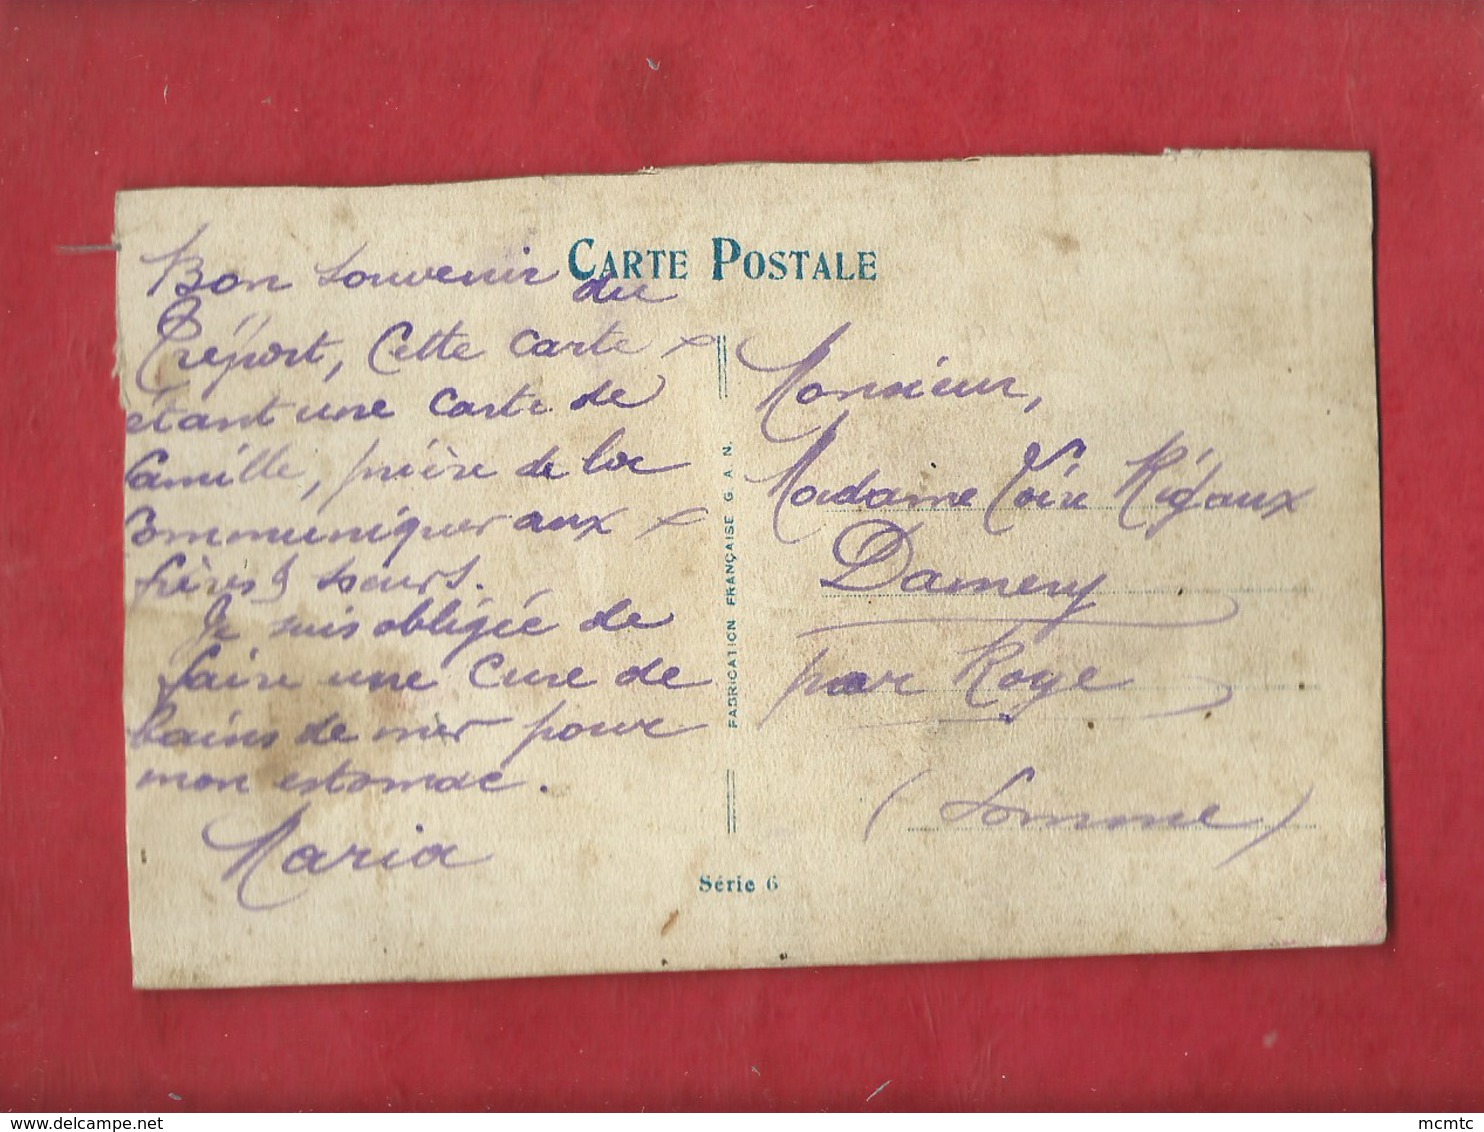 CARTE POSTALE
Bon souvenir du
Tréport, Cette carte
étant une carte de
famille, prière de la
communiquer aux
frères & soeurs.
Je suis obligée de
faire une cure de
bains de mer pour
mon estomac.
Maria
FABRICATION FRANÇAISE G. A. N.
Série 6
Monsieur,
Madame Rigaux
Damery
par Roye
(Somme)
mcmtc